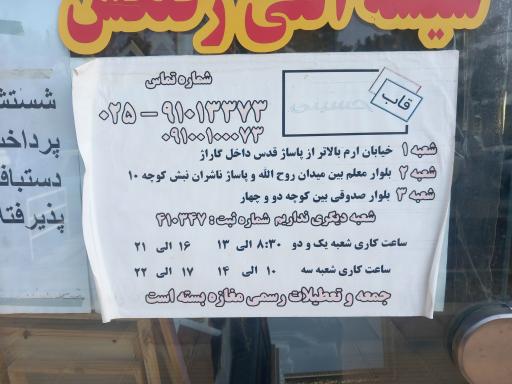 شماره تماس
قاب
۰۲۵ - ۹۱۰۱۳۳۷۳
۰۹۱۰۰۱۰۰۰۷۳
شعبه ۱ خیابان ارم بالاتر از پاساژ قدس داخل گاراژ
شعبه ۲ بلوار معلم بین میدان روح الله و پاساژ ناشران نبش کوچه ۱۰
شعبه ۳ بلوار صدوقی بین کوچه دو و چهار
شعبه دیگری نداریم شماره ثبت : ۴۱۰۳۴۷
ساعت کاری شعبه یک و دو ۸:۳۰ الی ۱۳ ۱۶ الی ۲۱
ساعت کاری شعبه سه ۱۰ الی ۱۴ ۱۷ الی ۲۲
جمعه و تعطیلات رسمی مغازه بسته است
پرداخ
دستباف